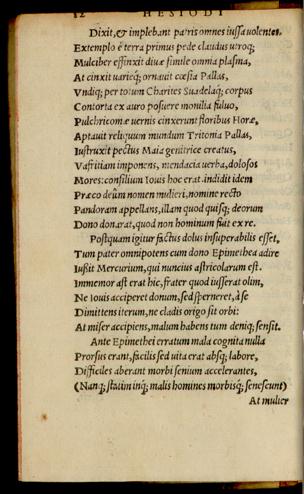 12 HESIODI
Dixit, & implebant patris omnes iussa uolentes.
Extemplo è terra primus pede claudus utroq;
Mulciber effinxit diuæ simile omnia plasma,
At cinxit uarieq; ornauit cæsia Pallas,
Vndiq; per totum Charites Suadelaq; corpus
Contorta ex auro posuere monilia fuluo,
Pulchricomæ uernis cinxerunt floribus Horæ,
Aptauit reliquum mundum Tritonia Pallas,
Iustruxit pectus Maia genitrice creatus,
Vafritiam imponens, mendacia uerba, dolosos
Mores: consilium Iouis hoc erat. indidit idem
Præco deûm nomen mulieri, nomine recto
Pandoram appellans, illam quod quisq; deorum
Dono donarat, quod non hominum fuit ex re.
Postquam igitur factus dolus insuperabilis esset,
Tum pater omnipotens cum dono Epimethea adire
Iußit Mercurium, qui nuncius astricolarum est.
Immemor ast erat hic, frater quod iusserat olim,
Ne Iouis acciperet donum, sed sperneret, à se
Dimittens iterum, ne cladis origo sit orbi:
At miser accipiens, malum habens tum deniq; sensit.
Ante Epimethei erratum mala cognita nulla
Prorsus erant, facilis sed uita erat absq; labore,
Difficiles aberant morbi senium accelerantes,
(Nanq; statim inq; malis homines morbisq; senescunt)
At mulier